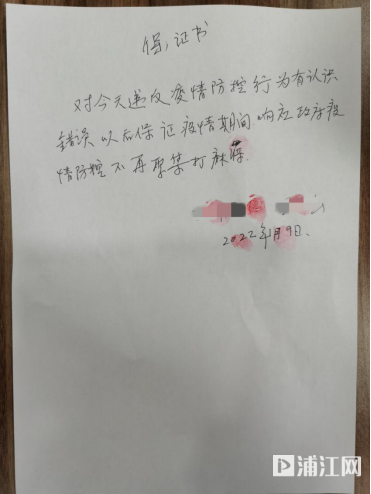 保证书
对今天违反疫情防控行为有认识
错误以后保证疫情期间响应政府疫
情防控不再聚集打麻将.
2022年1月9日.
浦江网